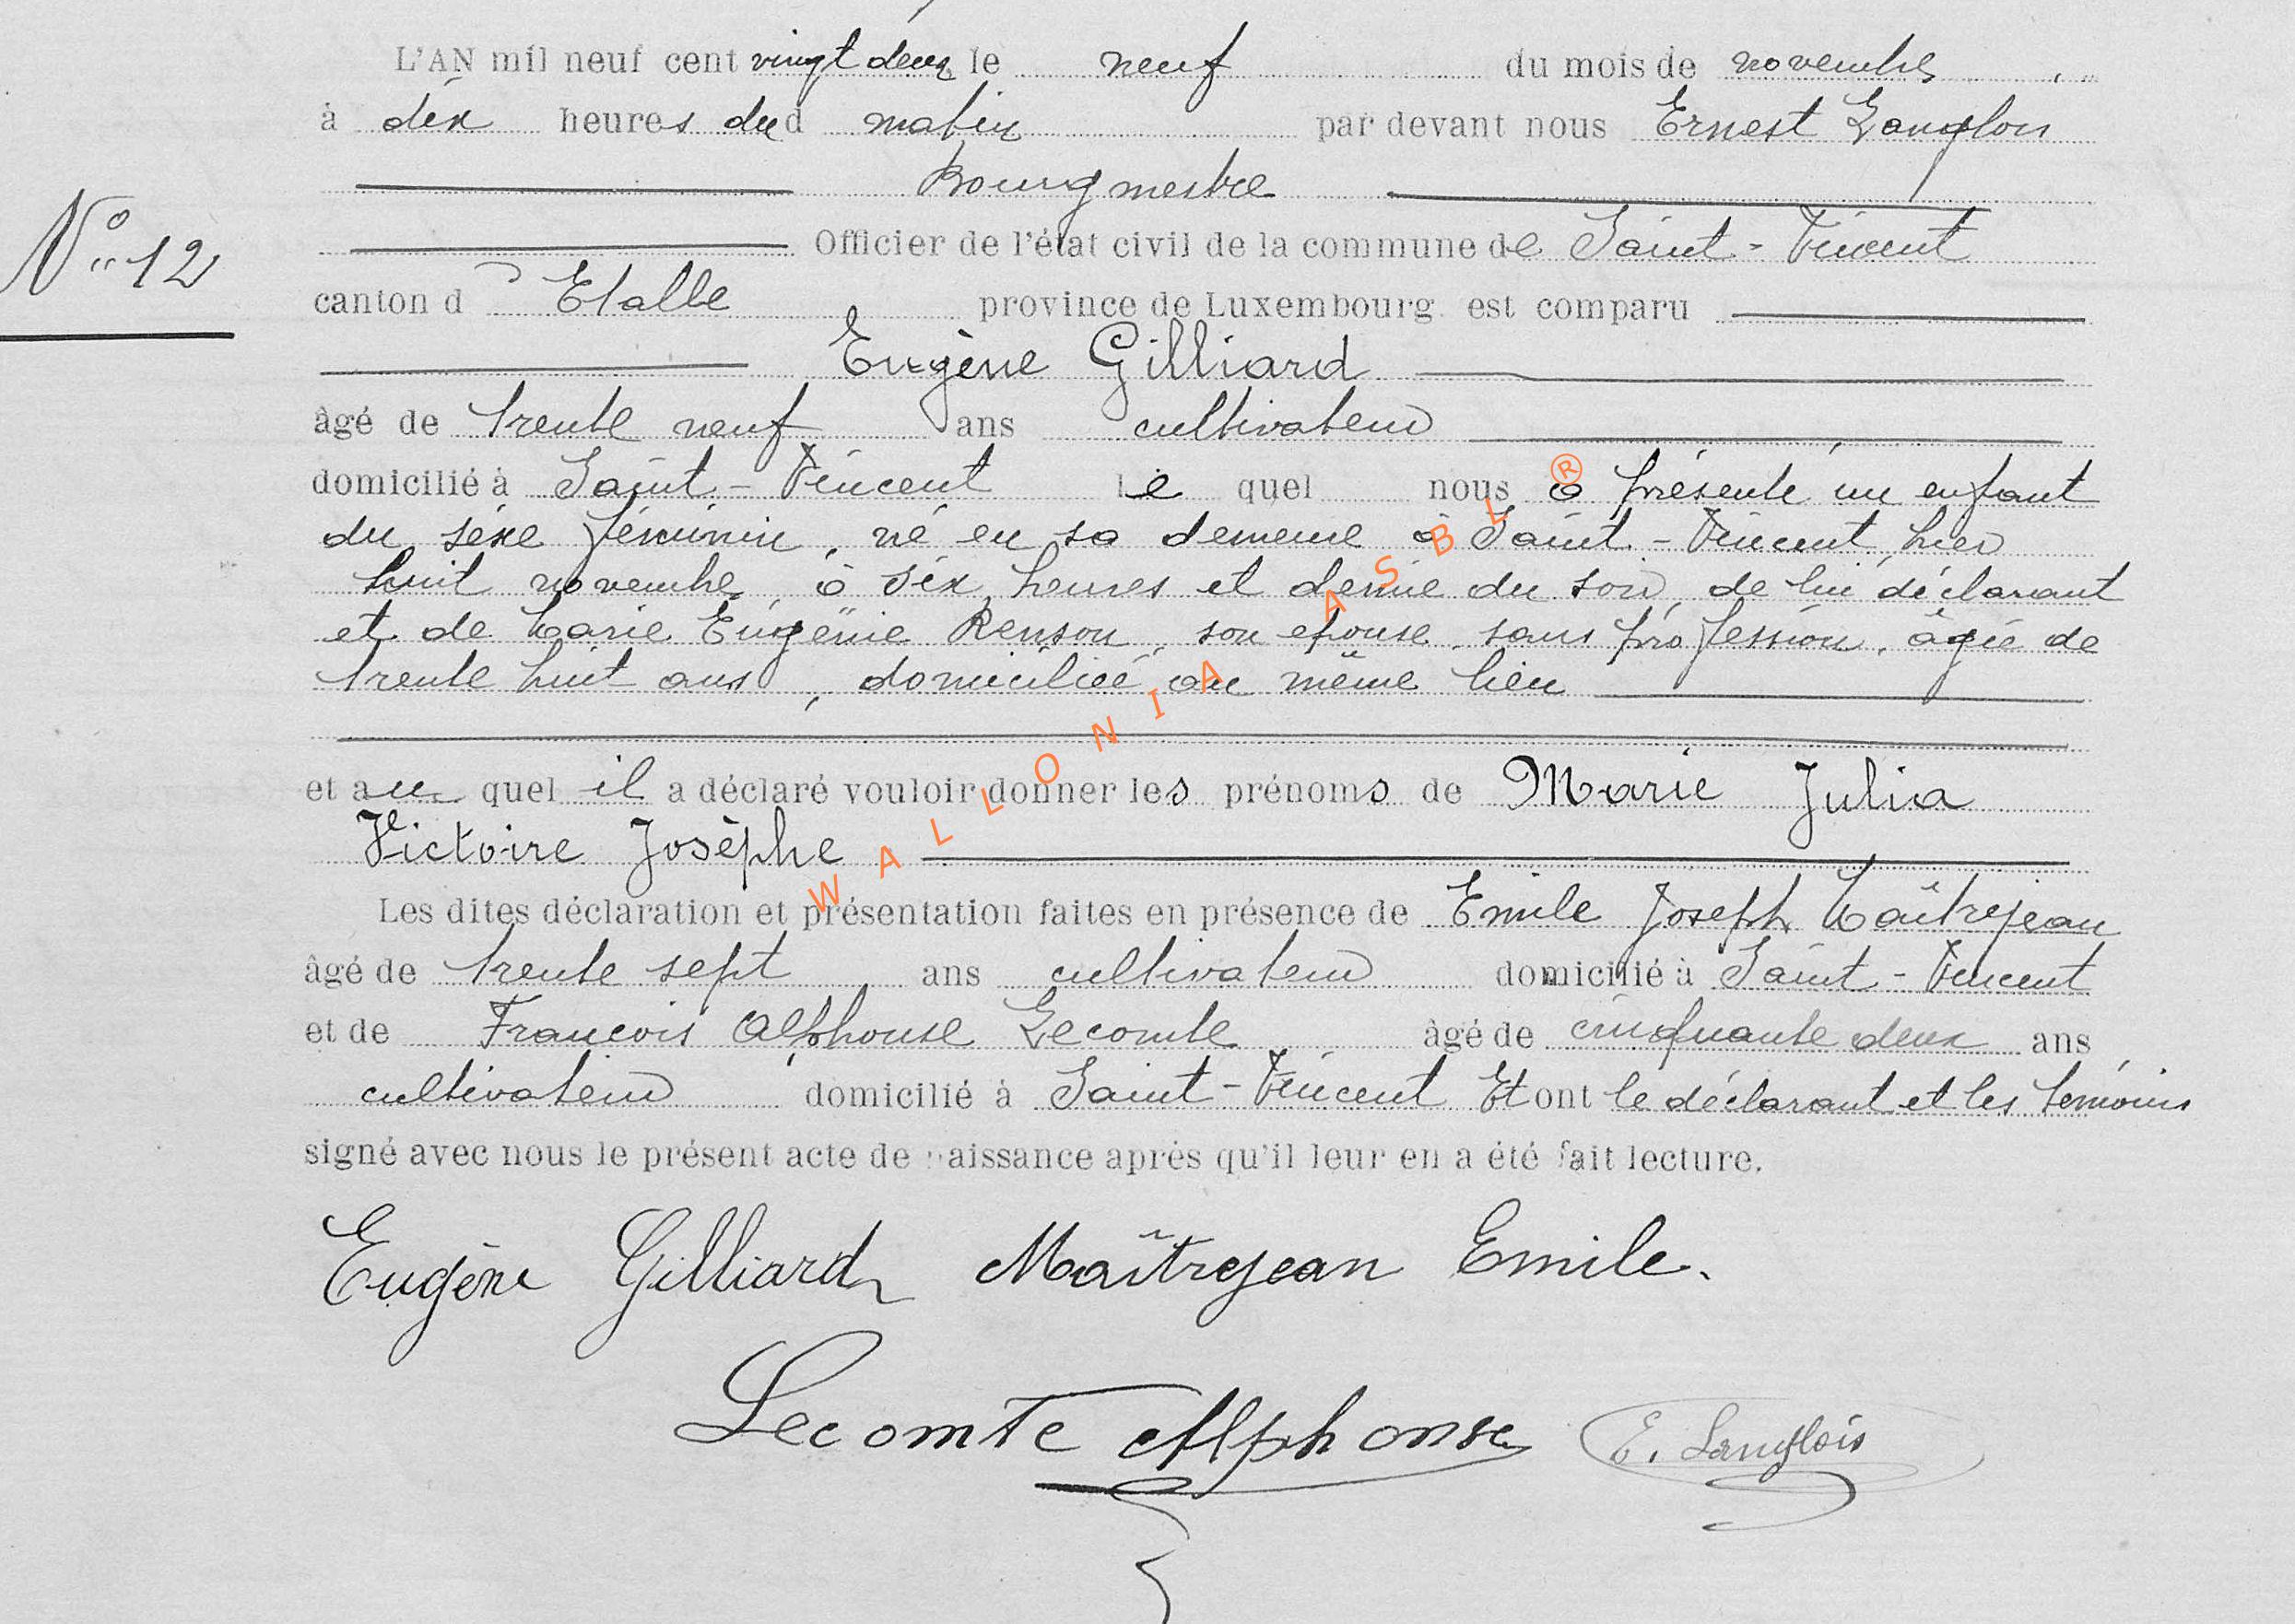 L'AN mil neuf cent vingt deux le neuf du mois de novembre
à dix heures du d matin par devant nous Ernest Langlois
Bourgmestre
N° 12
Officier de l'état civil de la commune de Saint-Vincent
canton d'Etalle province de Luxembourg est comparu
Eugène Gilliard
âgé de trente neuf ans cultivateur
domicilié à Saint-Vincent le quel nous a présenté un enfant
du sexe féminin, né en sa demeure à Saint-Vincent, hier
huit novembre, à six heures et demie du soir, de lui déclarant
et de Marie Eugénie Renson, son épouse, sans profession, âgée de
trente huit ans, domiciliée au même lieu
et au quel il a déclaré vouloir donner les prénoms de Marie Julia
Victoire Josèphe
Les dites déclaration et présentation faites en présence de Emile Joseph Maîtrejean
âgé de trente sept ans cultivateur domicilié à Saint-Vincent
et de François Alphonse Lecomte âgé de cinquante deux ans
cultivateur domicilié à Saint-Vincent Et ont le déclarant et les témoins
signé avec nous le présent acte de naissance après qu'il leur en a été fait lecture.
Eugène Gilliard Maîtrejean Emile.
Lecomte Alphonse E. Langlois
WALLONIA ASBL ®